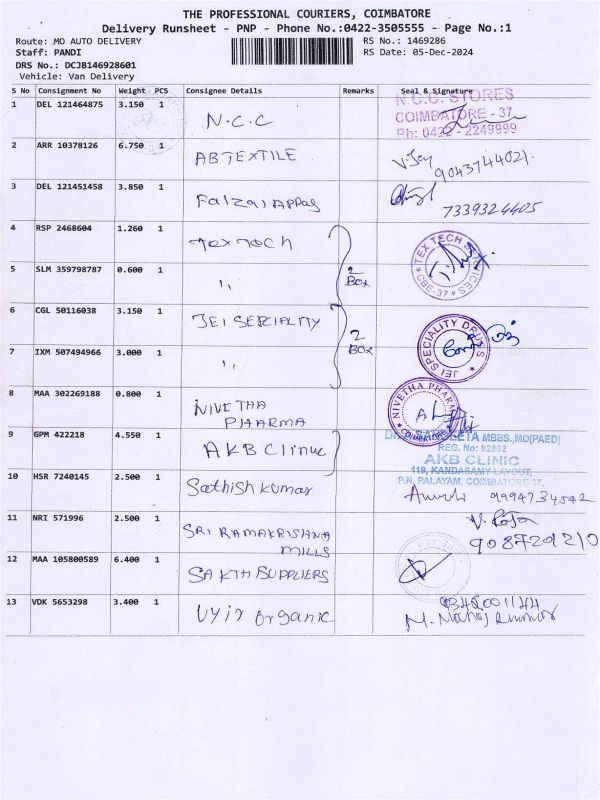 THE PROFESSIONAL COURIERS, COIMBATORE
Delivery Runsheet - PNP - Phone No.:0422-3505555 - Page No.:1
Route: MO AUTO DELIVERY RS No.: 1469286
Staff: PANDI RS Date: 05-Dec-2024
DRS No.: DCJB146928601
Vehicle: Van Delivery
S No Consignment No Weight PCS Consignee Details Remarks Seal & Signature
1 DEL 121464875 3.150 1 N.C.C N.C.C. STORES
COIMBATORE - 37
Ph: 0422 - 2249999
2 ARR 10378126 6.750 1 ABTEXTILE V.Jay
9043744021.
3 DEL 121451458 3.850 1 Faizal APPas
7339324405
4 RSP 2468604 1.260 1 Tex Tech TEX TECH SERVICES
CBE-37
5 SLM 359798787 0.600 1 " 2 BOX
6 CGL 50116038 3.150 1 JEI SPECIALITY JEI SPECIALITY DRUGS
7 IXM 507494966 3.000 1 " 2 BOX
8 MAA 302269188 0.800 1 NIVETHA NIVETHA PHARMA
PHARMA
9 GPM 422218 4.550 1 AKB Clinic SANGEETA MBBS.,MD(PAED)
REG. No: 82862
AKB CLINIC
119, KANDASAMY LAYOUT,
P.N. PALAYAM, COIMBATORE-37.
10 HSR 7240145 2.500 1 Sathish Kumar 9994734542
11 NRI 571996 2.500 1 SRI RAMAKRISHNA V. Raja
MILLS 908720210
12 MAA 105800589 6.400 1 SAKTHI SUPPLIERS
13 VDK 5653298 3.400 1 Uyir Organic
M. Manoj Kumar